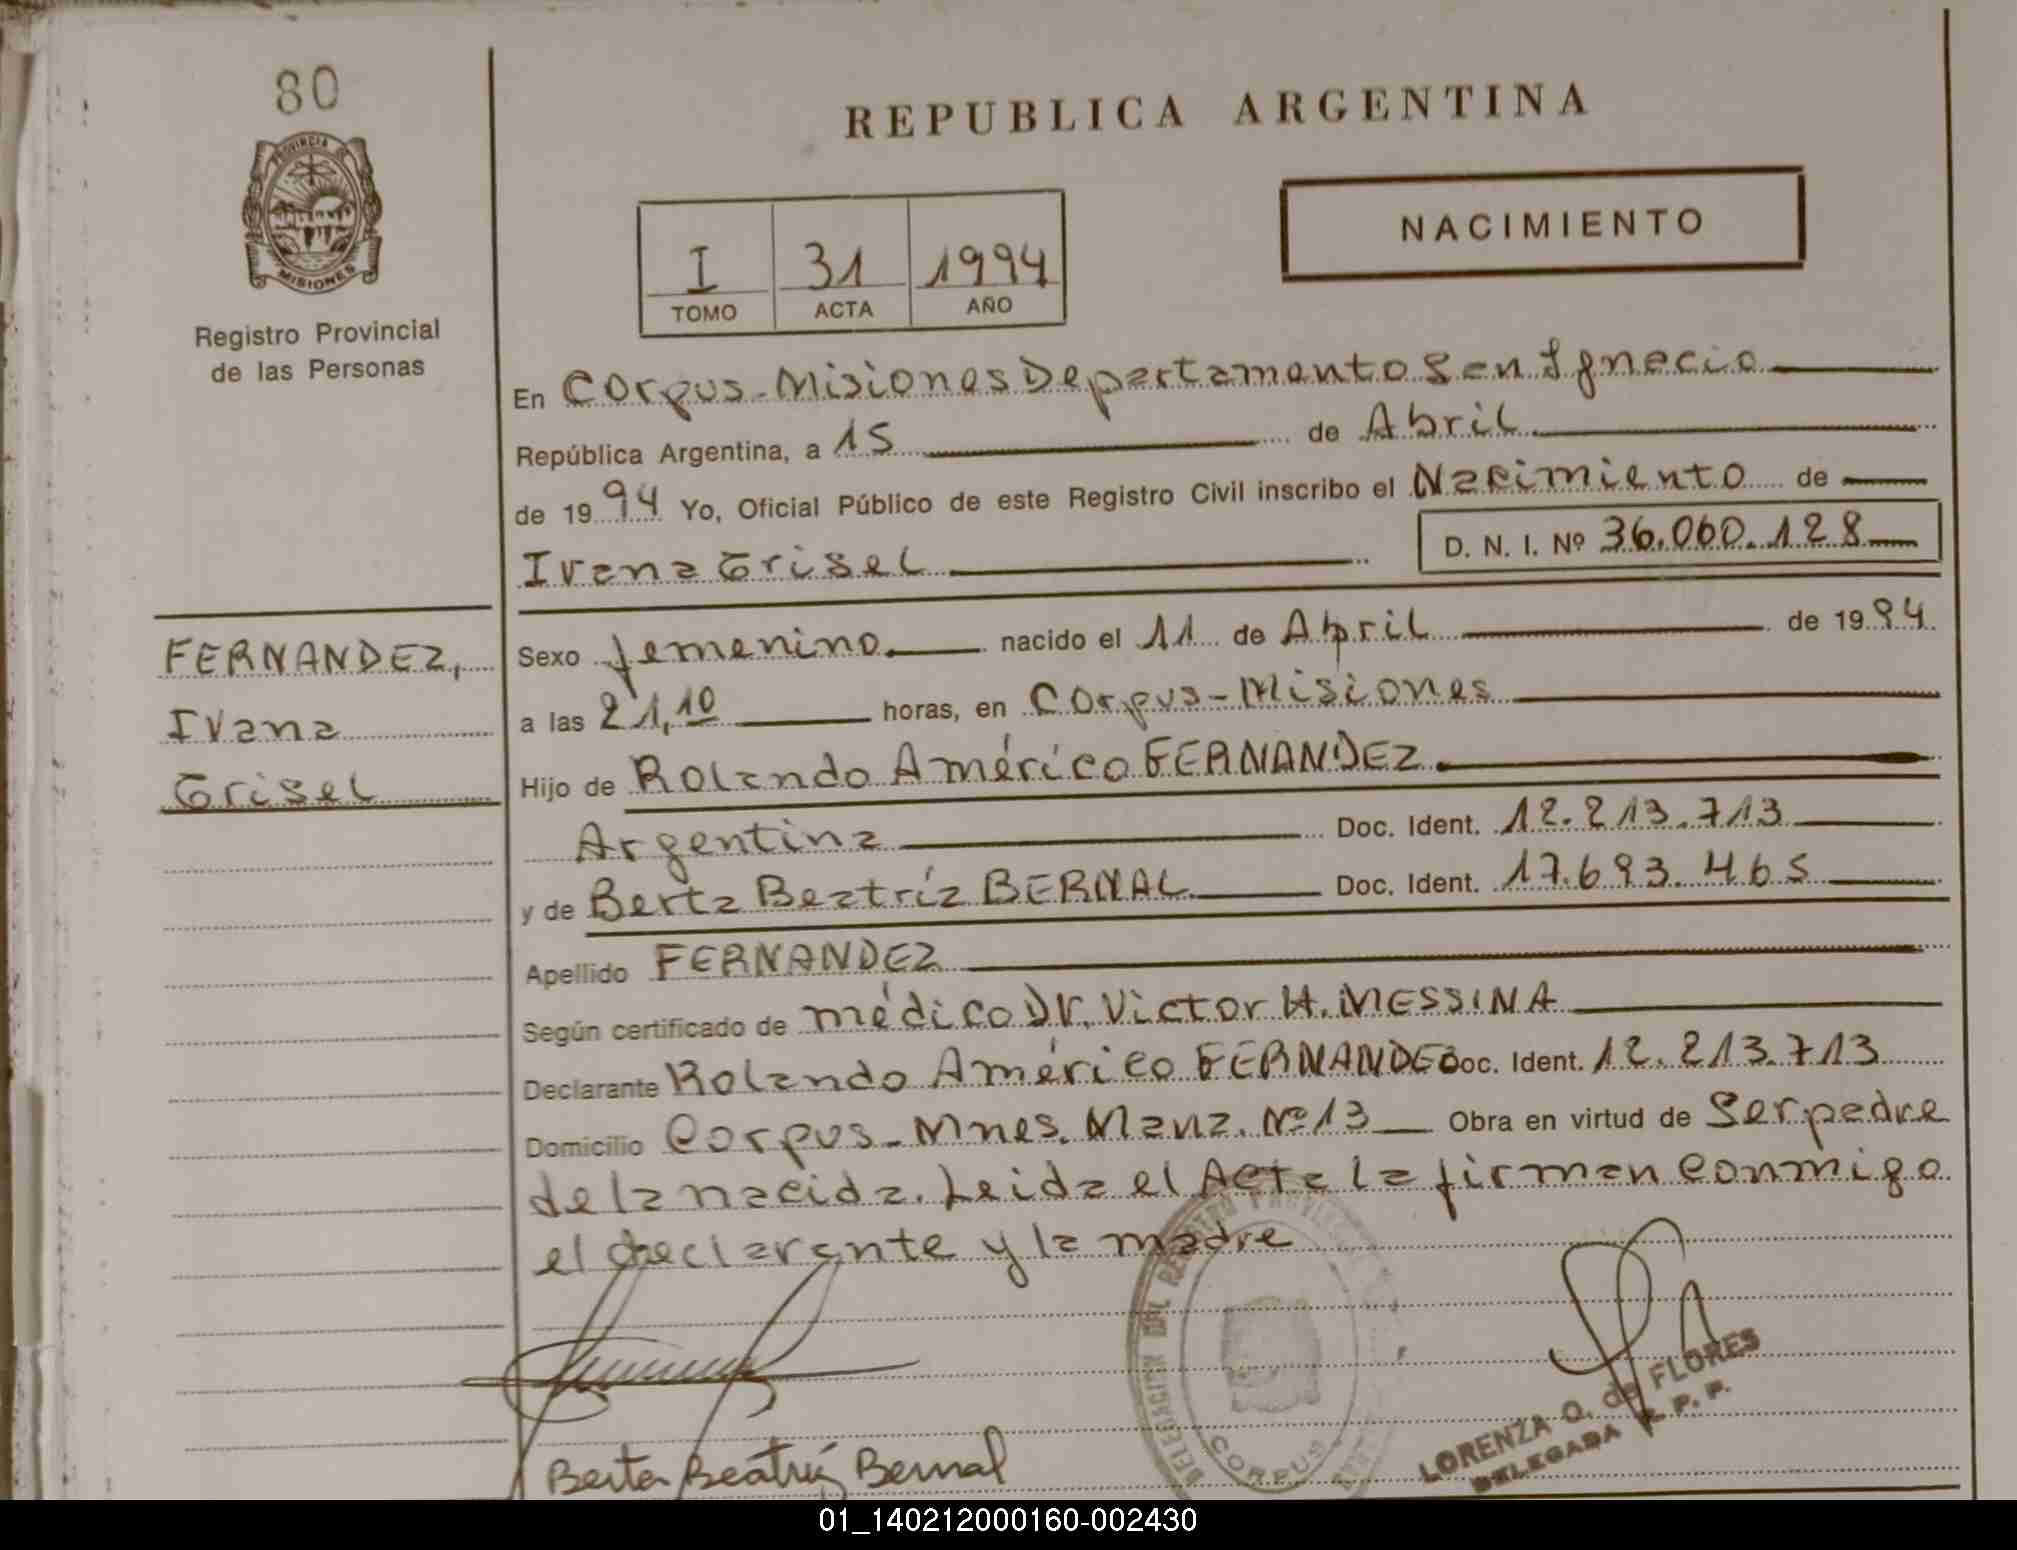 80
PROVINCIA DE
MISIONES
Registro Provincial
de las Personas
REPUBLICA ARGENTINA
NACIMIENTO
I 31 1994
TOMO ACTA AÑO
En Corpus-Misiones Departamento San Ignacio
República Argentina, a 15 de Abril
de 1994 Yo, Oficial Público de este Registro Civil inscribo el Nacimiento de
Ivana Grisel D. N. I. Nº 36.060.128
FERNANDEZ,
Ivana
Grisel
Sexo femenino nacido el 11 de Abril de 1994
a las 21,10 horas, en Corpus-Misiones
Hijo de Rolando Américo FERNANDEZ
Argentina Doc. Ident. 12.213.713
y de Berta Beatríz BERNAL Doc. Ident. 17.693.465
Apellido FERNANDEZ
Según certificado de médico Dr. Victor H. MESSINA
Declarante Rolando Américo FERNANDEZ Doc. Ident. 12.213.713
Domicilio Corpus-Mnes. Manz. Nº13 Obra en virtud de Ser padre
de la nacida. Leida el Acta la firman conmigo
el declarante y la madre
Berta Beatríz Bernal
DELEGACION DEL REGISTRO PROVINCIAL
CORPUS
LORENZA O. de FLORES
DELEGADA R. P. P.
01_140212000160-002430